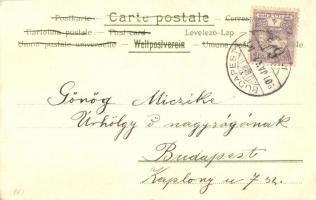 Postkarte — Carte postale — Corres
Cartolina postale — Post card — Levelező-Lap
Union postale universelle — Weltpostverein — Union
BUDAPEST
Gönög Miczike
Úrhölgy ő nagyságának
Budapest
Kaplony u 7 sz.